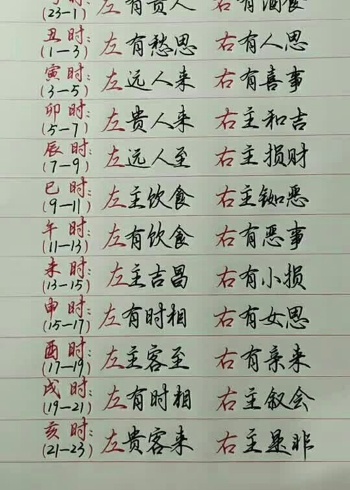 左有贵人 右有酒食
(23-1)
丑时: 左有愁思 右有人思
(1-3)
寅时: 左远人来 右有喜事
(3-5)
卯时: 左贵人来 右主和吉
(5-7)
辰时: 左远人至 右主损财
(7-9)
巳时: 左主饮食 右主恶
(9-11)
午时: 左有饮食 右有恶事
(11-13)
未时: 左主吉昌 右有小损
(13-15)
申时: 左有时相 右有女恩
(15-17)
酉时: 左主客至 右有亲来
(17-19)
戌时: 左有时相 右主叙会
(19-21)
亥时: 左贵客来 右主是非
(21-23)